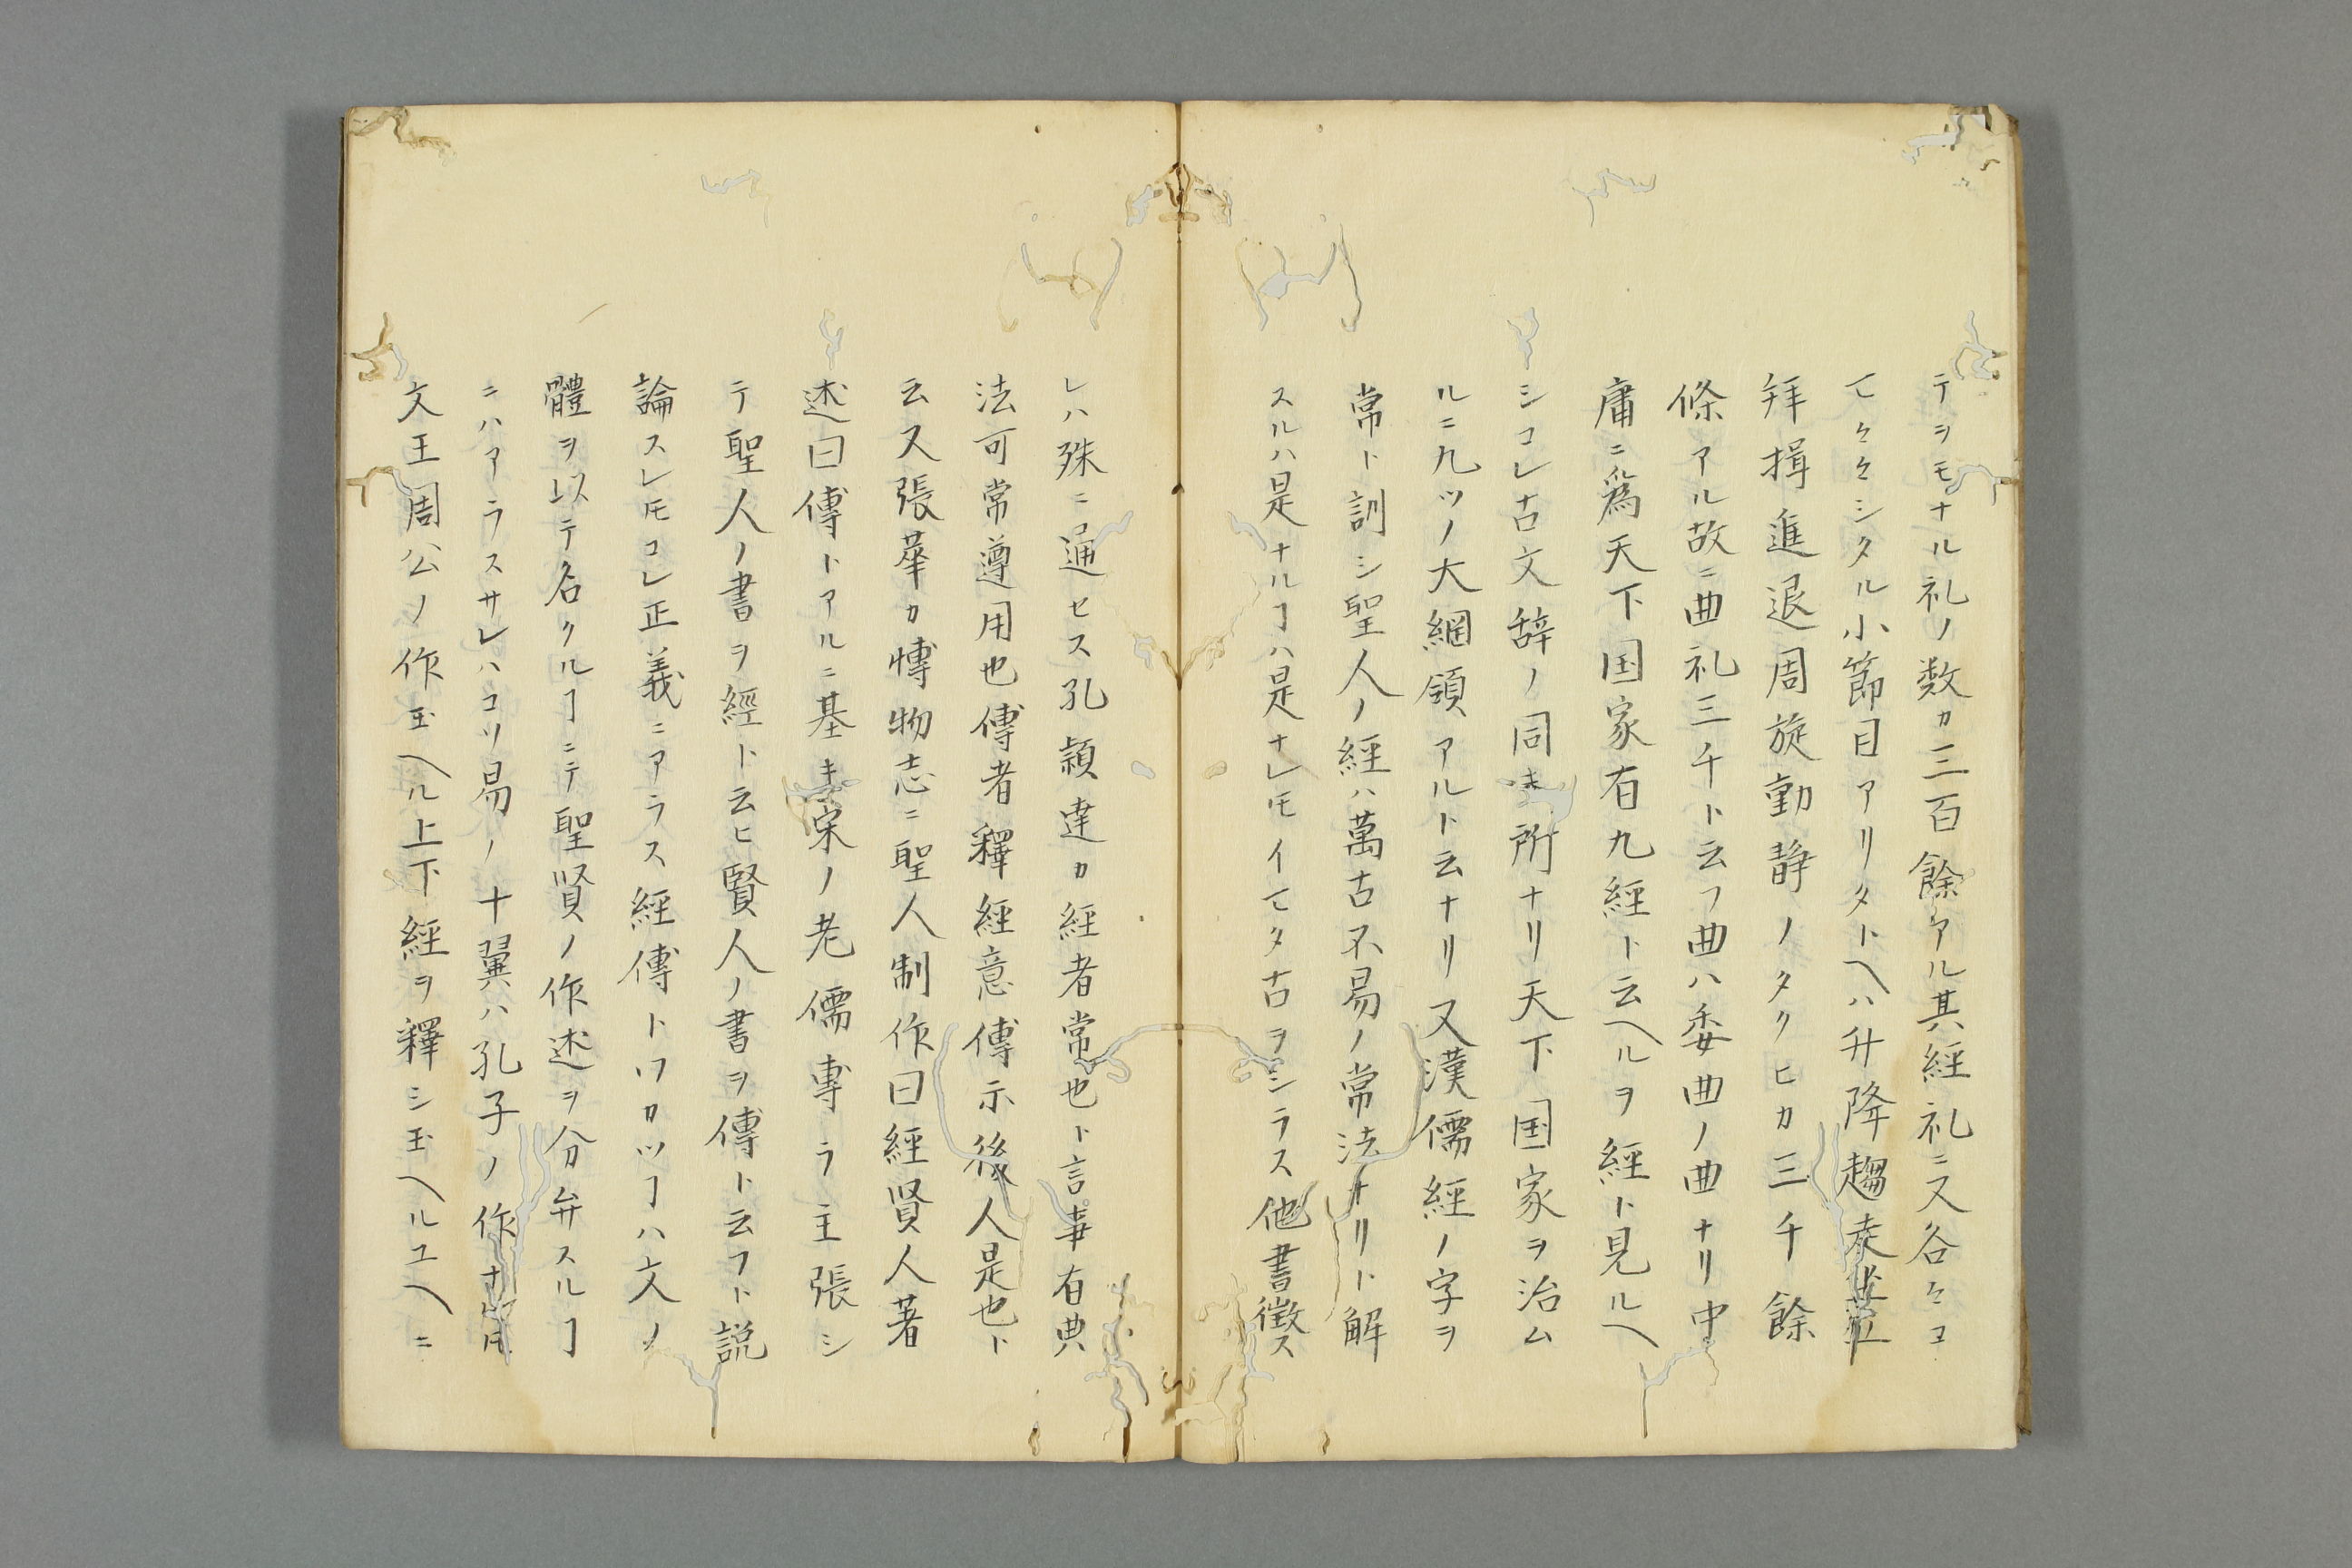 テヲモナル礼ノ数カ三百餘アル其経礼ニ又各々コ
マクヽシタル小節目アリタトヘハ升降趨走坐立
拜揖進退周旋動静ノタクヒカ三千餘
條アル故ニ曲礼三千ト云フ曲ハ委曲ノ曲ナリ中
庸ニ爲天下国家有九経ト云ヘルヲ経ト見ルヘ
シコレ古文辞ノ同キ所ナリ天下国家ヲ治ム
ルニ九ツノ大綱領アルト云ナリ又漢儒経ノ字ヲ
常ト訓シ聖人ノ経ハ萬古不易ノ常法ナリト解
スルハ是ナルヿハ是ナレ𪜈イマタ古ヲシラス他書徴ス
レハ殊ニ通セス孔頴達カ経者常也ト言事有典
法可常遵用也傳者釋経意傳示後人是也ト
云又張華カ愽物志ニ聖人制作曰経賢人著
述曰傳トアルニ基キ宋ノ老儒專ラ主張シ
テ聖人ノ書ヲ經ト云ヒ賢人ノ書ヲ傳ト云フト説
論スレ𪜈コレ正義ニアラス経傳トワカツヿハ文ノ
體ヲ以テ名クルヿニテ聖賢ノ作述ヲ分弁スルヿ
ニハアラスサレハコソ易ノ十翼ハ孔子ノ作ナレ𪜈
文王周公ノ作玉ヘル上下経ヲ釋シ玉ヘルユヘニ